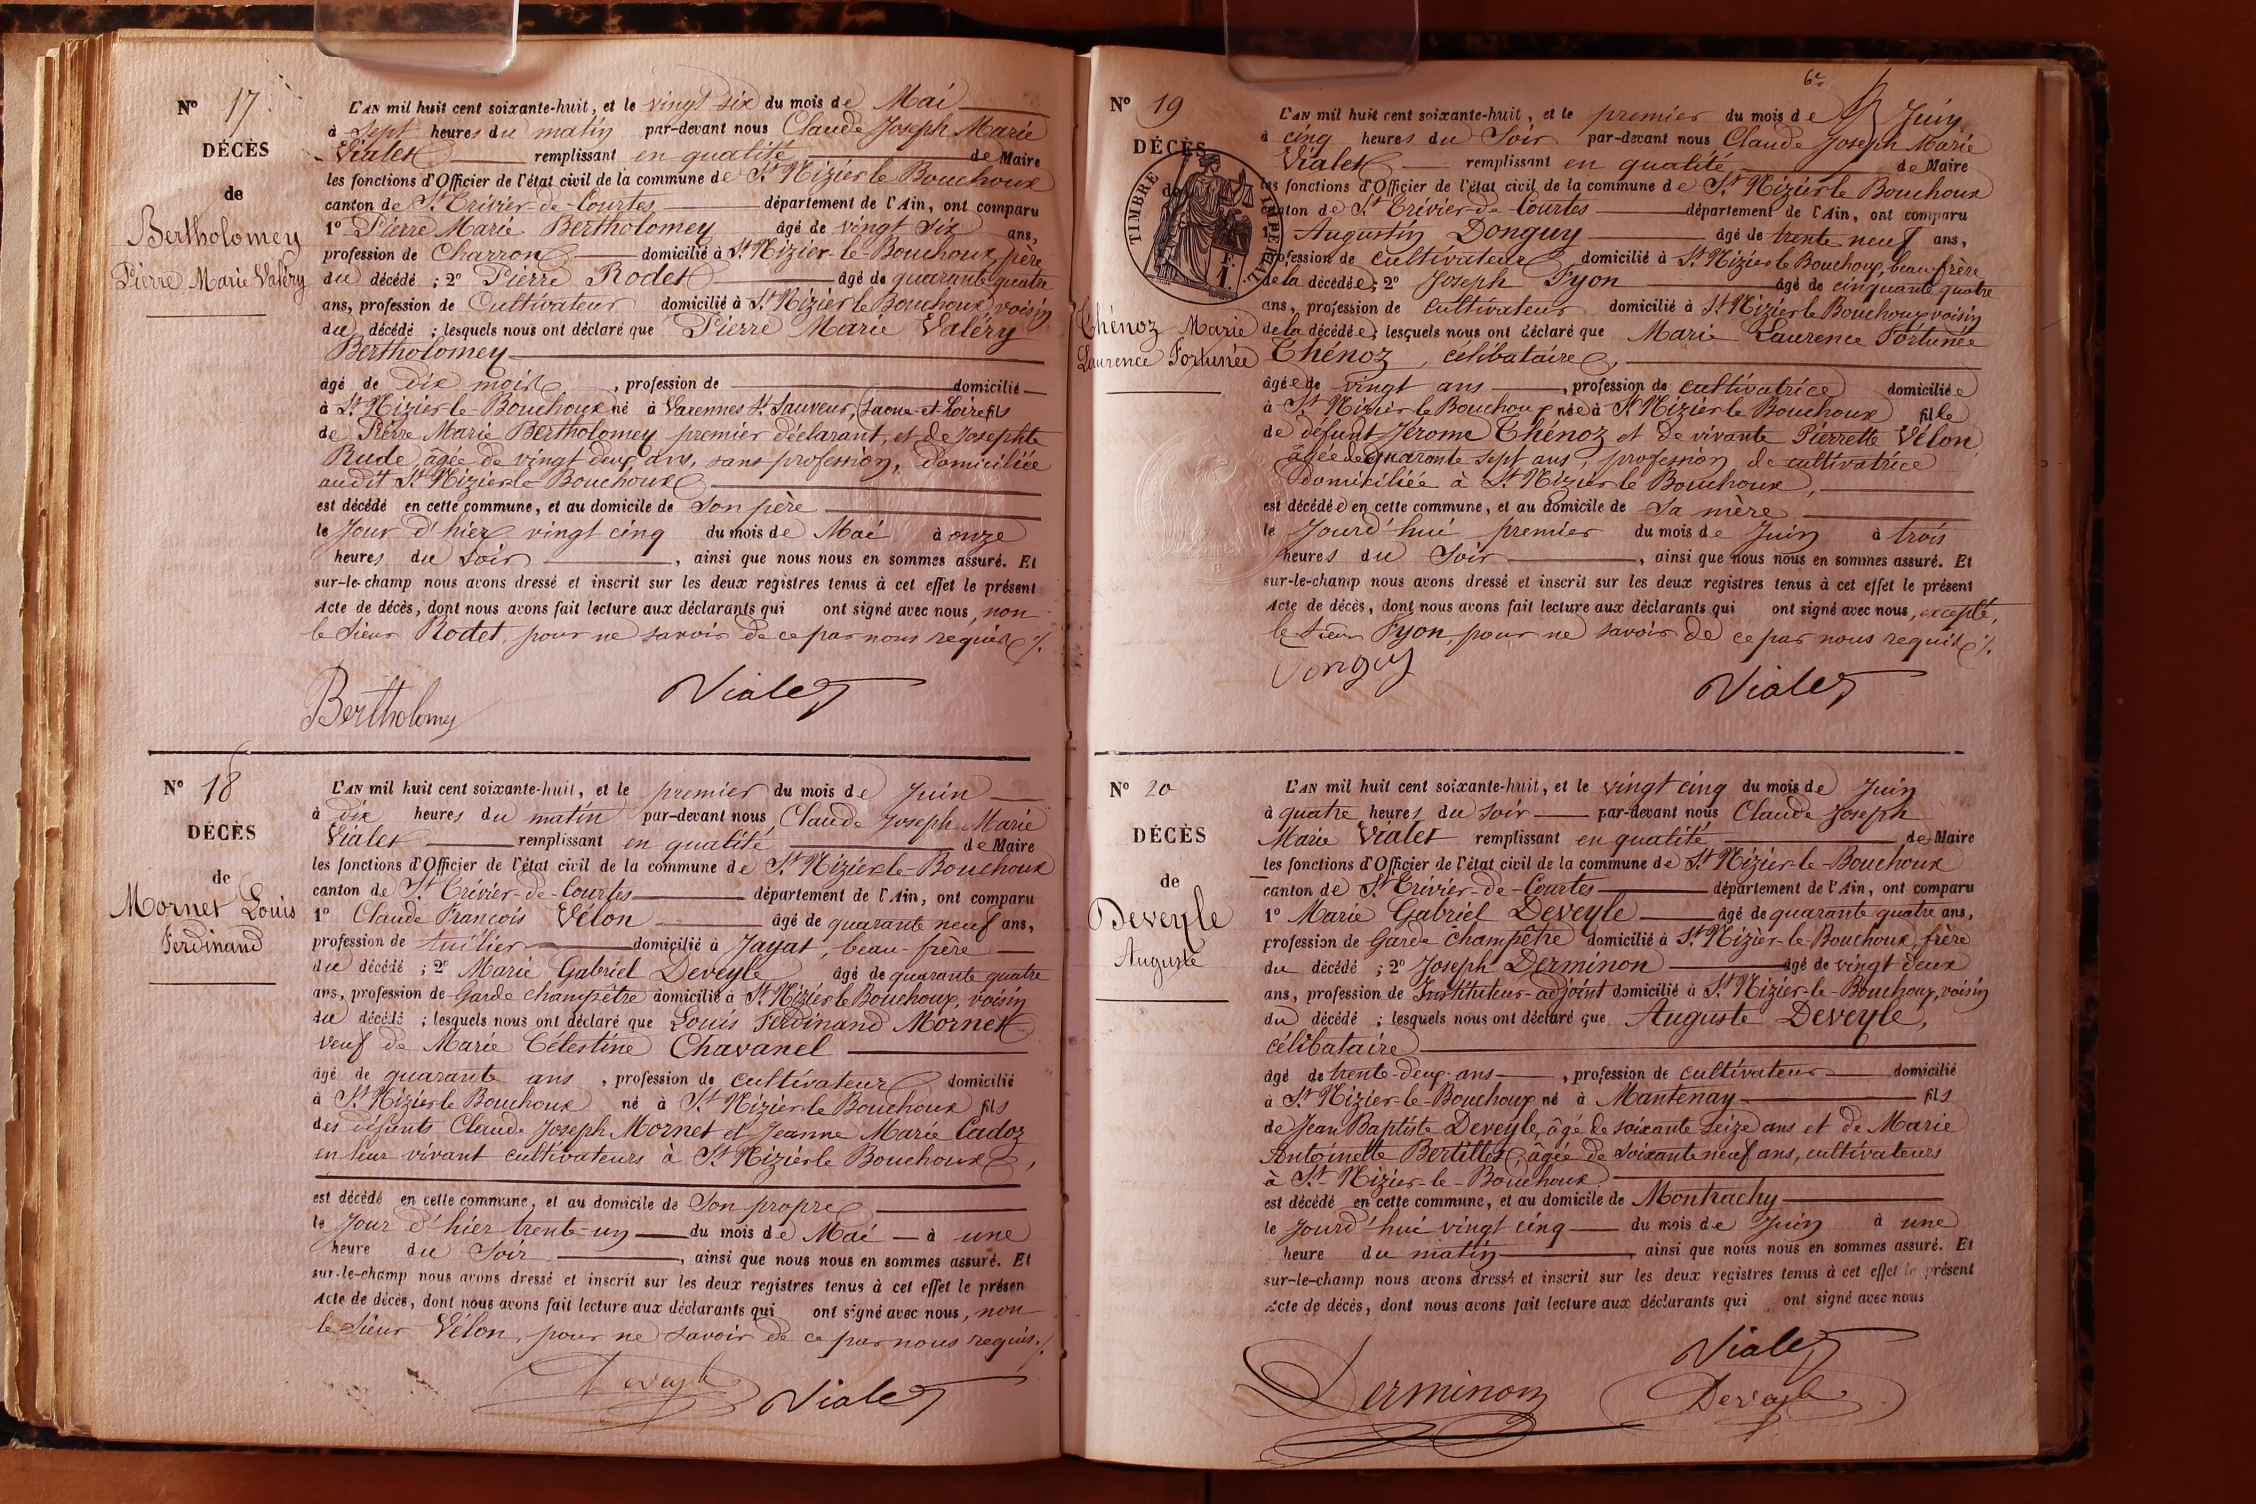 N° 17
DÉCÈS
de
Bertholomey
Pierre Marie Valéry
L'AN mil huit cent soixante-huit, et le vingt six du mois de Mai
à Sept heures du matin par-devant nous Claude Joseph Marie
Vialet remplissant en qualité de Maire
les fonctions d'Officier de l'état civil de la commune de St Nizier le Bouchoux
canton de St Trivier-de-Courtes département de l'Ain, ont comparu
1° Pierre Marie Bertholomey âgé de vingt six ans,
profession de Charron domicilié à St Nizier-le-Bouchoux, père
du décédé ; 2° Pierre Rodet âgé de quarante quatre
ans, profession de Cultivateur domicilié à St Nizier le Bouchoux, voisin
du décédé ; lesquels nous ont déclaré que Pierre Marie Valéry
Bertholomey
âgé de dix mois , profession de domicilié
à St Nizier-le-Bouchoux né à Varennes St Sauveur, Saone-et-Loire fils
de Pierre Marie Bertholomey premier déclarant, et de Josephte
Rude, âgée de vingt deux ans, sans profession, domiciliée
audit St Nizier-le-Bouchoux
est décédé en cette commune, et au domicile de Son père
le Jour d'hier vingt cinq du mois de Mai à onze
heures du Soir , ainsi que nous nous en sommes assuré. Et
sur-le-champ nous avons dressé et inscrit sur les deux registres tenus à cet effet le présent
Acte de décès, dont nous avons fait lecture aux déclarants qui ont signé avec nous, non
le Sieur Rodet, pour ne savoir de ce par nous requis ./.
Bertholomey Vialet
N° 18
DÉCÈS
de
Mornet Louis
Ferdinand
L'AN mil huit cent soixante-huit, et le premier du mois de Juin
à dix heures du matin par-devant nous Claude Joseph Marie
Vialet remplissant en qualité de Maire
les fonctions d'Officier de l'état civil de la commune de St Nizier-le-Bouchoux
canton de St Trivier-de-Courtes département de l'Ain, ont comparu
1° Claude François Vélon âgé de quarante neuf ans,
profession de tuilier domicilié à Jayat, beau-frère
du décédé ; 2° Marie Gabriel Deveyle âgé de quarante quatre
ans, profession de Garde champêtre domicilié à St Nizier le Bouchoux, voisin
du décédé ; lesquels nous ont déclaré que Louis Ferdinand Mornet
veuf de Marie Célestine Chavanel
âgé de quarante ans , profession de cultivateur domicilié
à St Nizier le Bouchoux né à St Nizier-le-Bouchoux fils
des défunts Claude Joseph Mornet et Jeanne Marie Cadoz
en leur vivant cultivateurs à St Nizier le Bouchoux,
est décédé en cette commune, et au domicile de Son propre
le Jour d'hier trente-un du mois de Mai à une
heure du Soir , ainsi que nous nous en sommes assuré. Et
sur-le-champ nous avons dressé et inscrit sur les deux registres tenus à cet effet le présen
Acte de décès, dont nous avons fait lecture aux déclarants qui ont signé avec nous, non
le Sieur Vélon, pour ne savoir de ce par nous requis ./.
Deveyle Vialet
6e
N° 19
DÉCÈS
de
TIMBRE IMPERIAL
1 F.
Chénoz Marie
Laurence Fortunée
L'AN mil huit cent soixante-huit, et le premier du mois de Juin
à cinq heures du Soir par-devant nous Claude Joseph Marie
Vialet remplissant en qualité de Maire
les fonctions d'Officier de l'état civil de la commune de St Nizier le Bouchoux
canton de St Trivier-de-Courtes département de l'Ain, ont comparu
Augustin Donguy âgé de trente neuf ans,
profession de cultivateur domicilié à St Nizier le Bouchoux, beau-frère
de la décédée ; 2° Joseph Fyon âgé de cinquante quatre
ans, profession de cultivateur domicilié à St Nizier le Bouchoux voisin
de la décédée ; lesquels nous ont déclaré que Marie Laurence Fortunée
Chénoz, célibataire,
âgée de vingt ans , profession de cultivatrice domiciliée
à St Nizier le Bouchoux née à St Nizier le Bouchoux fille
de défunt Jérome Chénoz et de vivante Pierrette Vélon,
âgée de quarante sept ans, profession de cultivatrice
domiciliée à St Nizier le Bouchoux,
est décédée en cette commune, et au domicile de Sa mère
le Jourd'hui premier du mois de Juin à trois
heures du Soir , ainsi que nous nous en sommes assuré. Et
sur-le-champ nous avons dressé et inscrit sur les deux registres tenus à cet effet le présent
Acte de décès, dont nous avons fait lecture aux déclarants qui ont signé avec nous, excepté,
le Sieur Fyon, pour ne savoir de ce par nous requis ./.
Donguy Vialet
N° 20
DÉCÈS
de
Deveyle
Auguste
L'AN mil huit cent soixante-huit, et le vingt cinq du mois de Juin
à quatre heures du Soir par-devant nous Claude Joseph
Marie Vialet remplissant en qualité de Maire
les fonctions d'Officier de l'état civil de la commune de St Nizier-le-Bouchoux
canton de St Trivier-de-Courtes département de l'Ain, ont comparu
1° Marie Gabriel Deveyle âgé de quarante quatre ans,
profession de Garde champêtre domicilié à St Nizier-le-Bouchoux, frère
du décédé ; 2° Joseph Derminon âgé de vingt deux
ans, profession de Instituteur-adjoint domicilié à St Nizier-le-Bouchoux, voisin
du décédé ; lesquels nous ont déclaré que Auguste Deveyle,
célibataire
âgé de trente-deux ans , profession de cultivateur domicilié
à St Nizier-le-Bouchoux né à Mantenay fils
de Jean Baptiste Deveyle, âgé de soixante seize ans et de Marie
Antoinette Bertillet, âgée de soixante neuf ans, cultivateurs
à St Nizier-le-Bouchoux
est décédé en cette commune, et au domicile de Montrachy
le Jourd'hui vingt cinq du mois de Juin à une
heure du matin , ainsi que nous nous en sommes assuré. Et
sur-le-champ nous avons dressé et inscrit sur les deux registres tenus à cet effet le présent
Acte de décès, dont nous avons fait lecture aux déclarants qui ont signé avec nous
Vialet
Derminon Deveyle